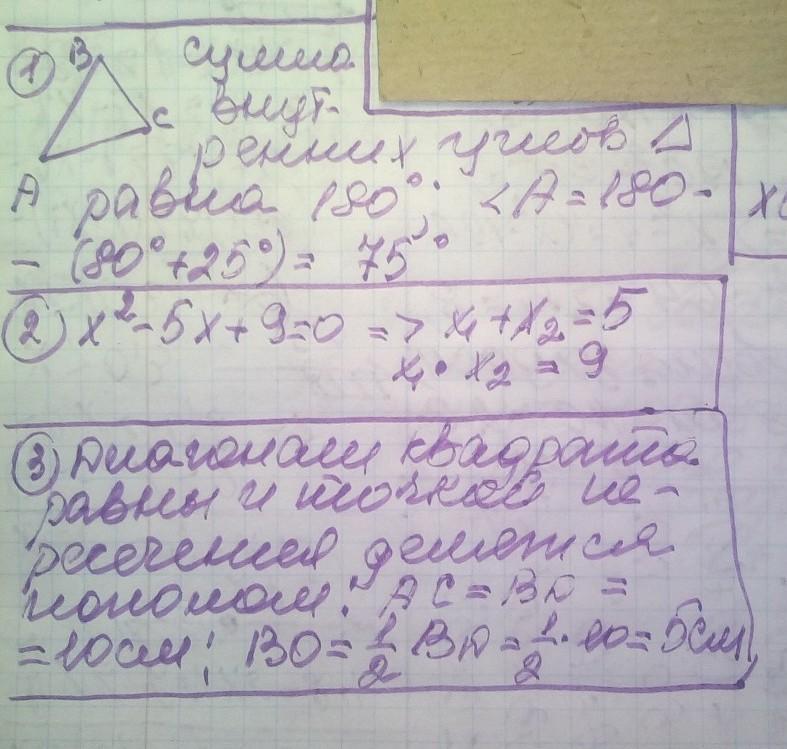 ① B C сумма
внут-
ренних углов Δ
A равна 180°; <A = 180 -
- (80° + 25°) = 75°
② x² - 5x + 9 = 0 => x₁ + x₂ = 5
x₁ • x₂ = 9
③ Диагонали квадрата
равны и точкой пе-
ресечения делятся
пополам: AC = BD =
= 10 см; BO = 1/2 BD = 1/2 • 10 = 5 см